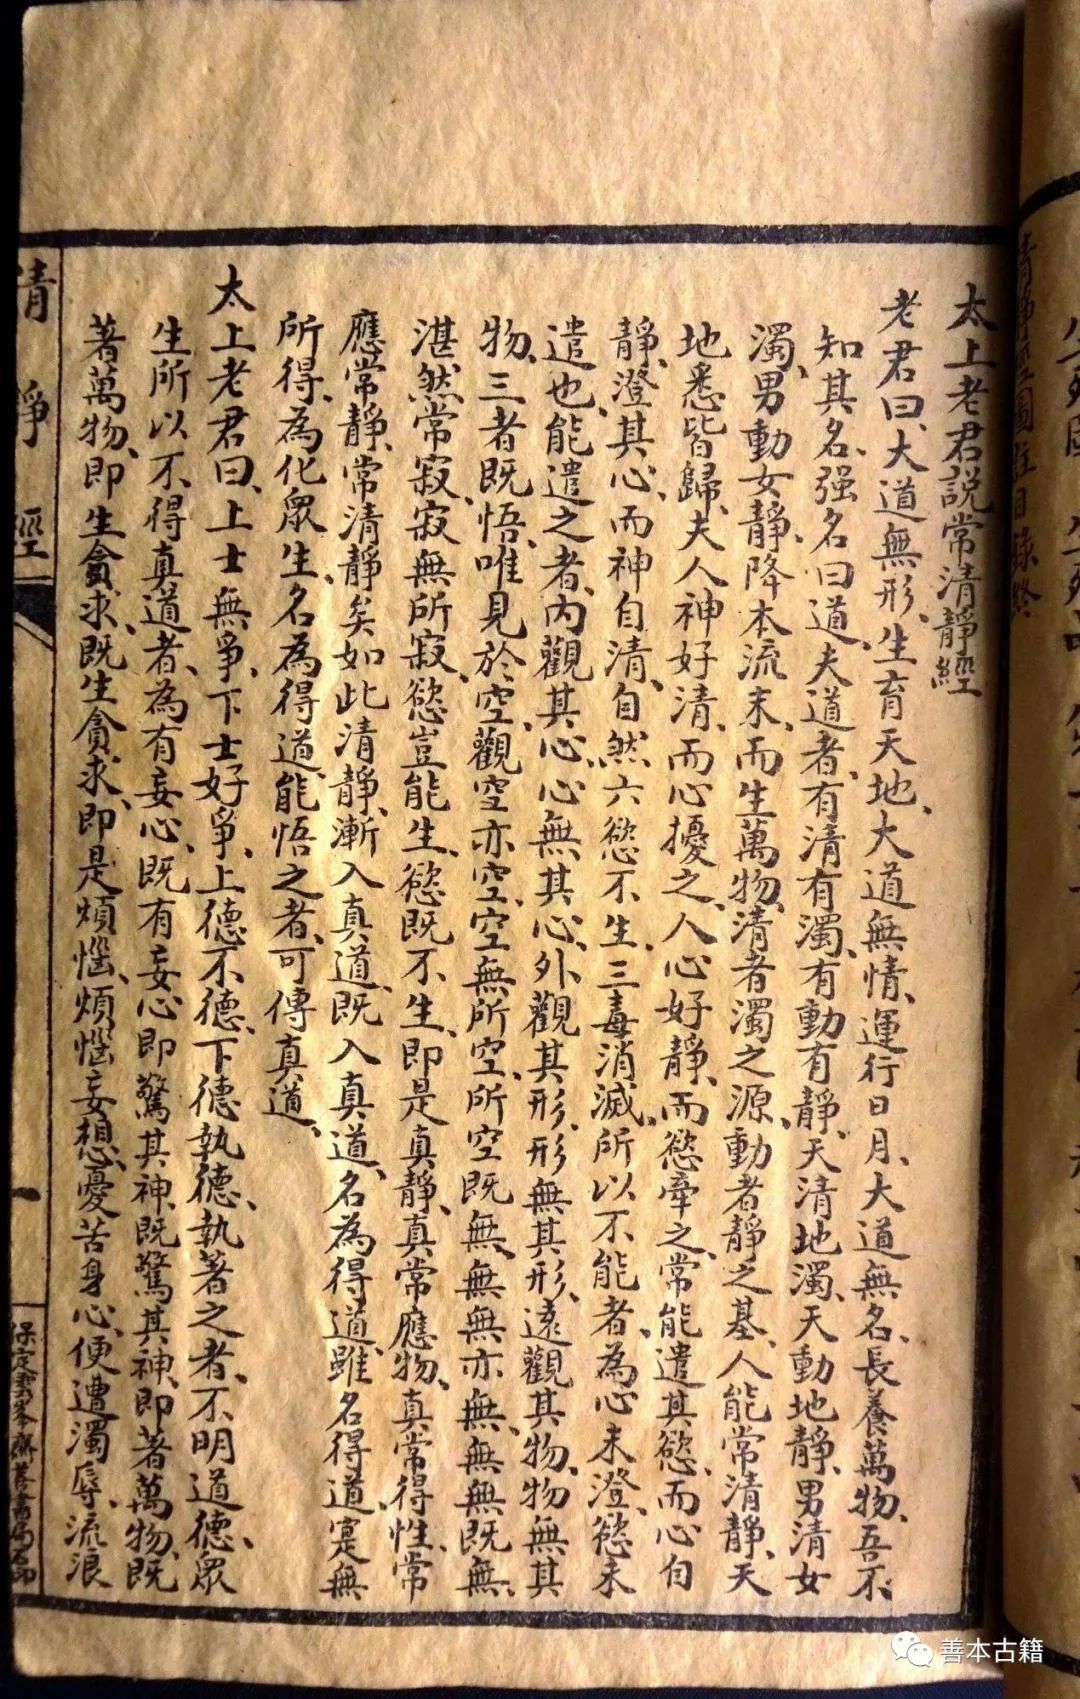 太上老君說常清靜經
老君曰、大道無形、生育天地、大道無情、運行日月、大道無名、長養萬物、吾不
知其名、强名曰道、夫道者、有清有濁、有動有靜、天清地濁、天動地靜、男清女
濁、男動女靜、降本流末、而生萬物、清者濁之源、動者靜之基、人能常清靜、天
地悉皆歸、夫人神好清、而心擾之、人心好靜、而慾牽之、常能遣其慾、而心自
靜、澄其心、而神自清、自然六慾不生、三毒消滅、所以不能者、為心未澄、慾未
遣也、能遣之者、內觀其心、心無其心、外觀其形、形無其形、遠觀其物、物無其
物、三者既悟、唯見於空、觀空亦空、空無所空、所空既無、無無亦無、無無既無、
湛然常寂、寂無所寂、慾豈能生、慾既不生、即是真靜、真常應物、真常得性、常
應常靜、常清靜矣、如此清靜、漸入真道、既入真道、名為得道、雖名得道、寔無
所得、為化眾生、名為得道、能悟之者、可傳真道、
太上老君曰、上士無爭、下士好爭、上德不德、下德執德、執著之者、不明道德、眾
生所以不得真道者、為有妄心、既有妄心、即驚其神、既驚其神、即著萬物、既
著萬物、即生貪求、既生貪求、即是煩惱、煩惱妄想、憂苦身心、便遭濁辱、流浪
清靜經
一
清靜經圖註目錄終
善本古籍